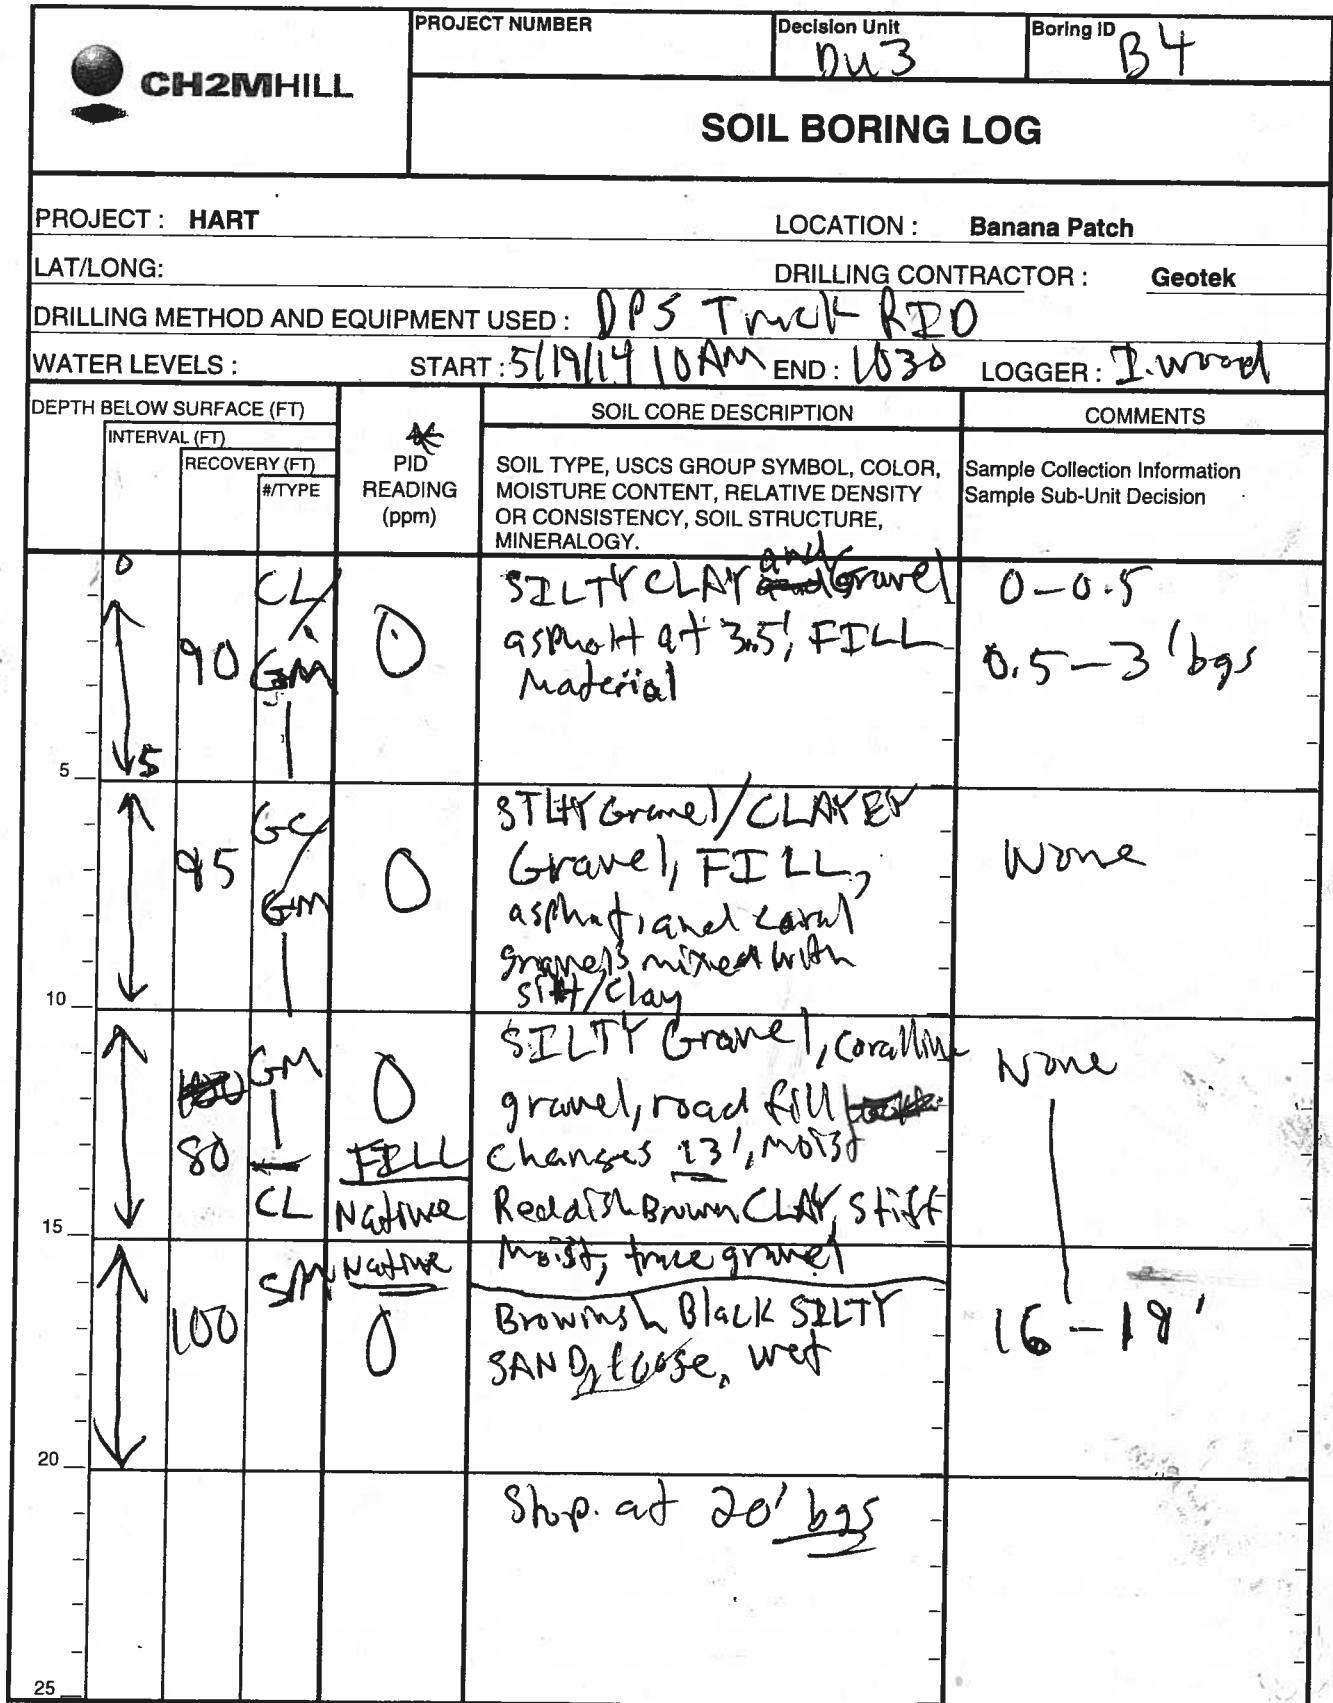 CH2MHILL
PROJECT NUMBER
Decision Unit
DU3
Boring ID
B4
SOIL BORING LOG
PROJECT : HART
LOCATION : Banana Patch
LAT/LONG:
DRILLING CONTRACTOR : Geotek
DRILLING METHOD AND EQUIPMENT USED : DPS Truck
WATER LEVELS : START : 5/19/14 10AM END : 1030 LOGGER : I. Wood
DEPTH BELOW SURFACE (FT)
INTERVAL (FT)
RECOVERY (FT)
#/TYPE
PID
READING
(ppm)
SOIL CORE DESCRIPTION
SOIL TYPE, USCS GROUP SYMBOL, COLOR,
MOISTURE CONTENT, RELATIVE DENSITY
OR CONSISTENCY, SOIL STRUCTURE,
MINERALOGY.
COMMENTS
Sample Collection Information
Sample Sub-Unit Decision
0
5
5
90
CL/
GM
0
SILTY CLAY and Gravel
asphalt at 3.5', FILL
Material
0-0.5
0.5-3' bgs
10
95
GC/
GM
0
SILTY Gravel/CLAYEY
Gravel, FILL,
asphalt, and coral
gravels mixed with
silt/clay
None
15
80
GM
CL
0
FILL
Native
SILTY Gravel, coralline
gravel, road fill
changes 13', moist
Reddish Brown CLAY, stiff
Moist, trace gravel
None
20
100
SM
Native
0
Browinsh Black SILTY
SAND, loose, wet
16-18'
Stop. at 20' bgs
25